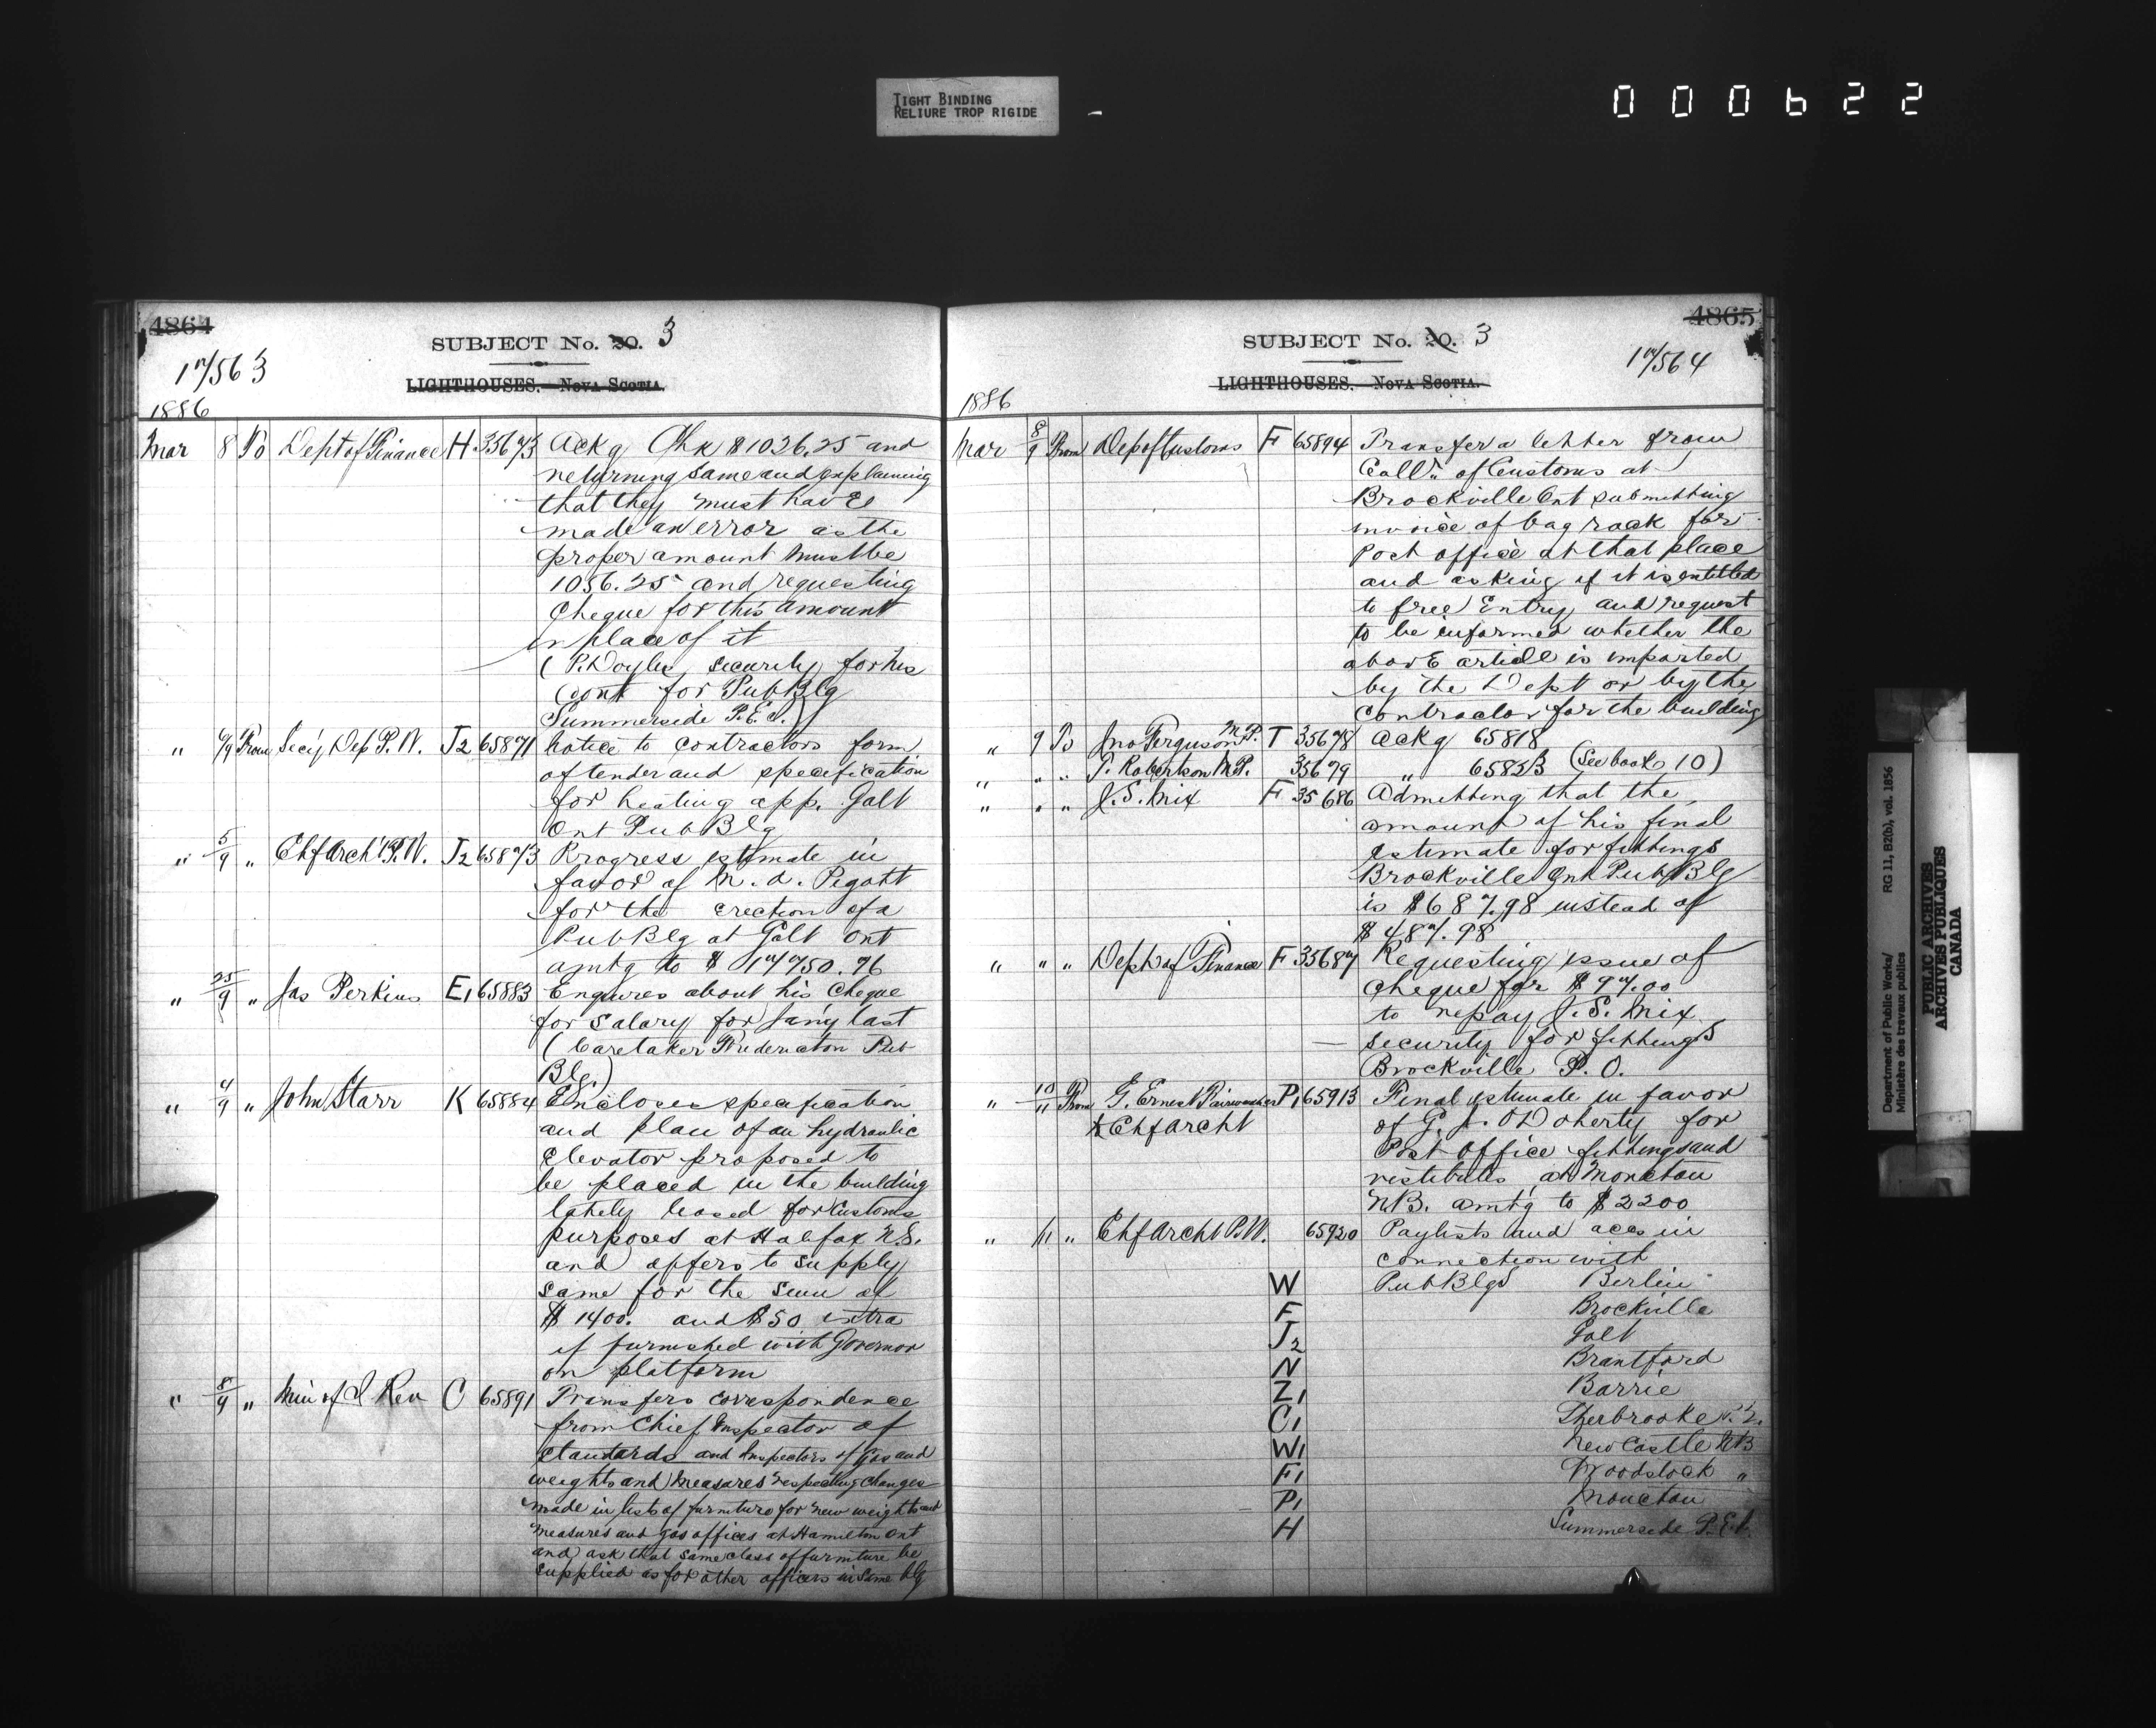 TIGHT BINDING
RELIURE TROP RIGIDE
000622
4864
SUBJECT No. 20. 3
17/563
LIGHTHOUSES. NOVA SCOTIA.
1886
Mar 8 To Dept of Finance H 35673 Ackg Chk $1026.25 and
returning same and explaining
that they must have
made an error as the
proper amount must be
1056.25 and requesting
cheque for this amount
in place of it
(P. Doyles security for his
Cont for Pub Blg
Summerside P.E.I.)
" 6/9 From Secy Dep P.W. J2 65871 notice to contractors form
of tender and specification
for heating app. Galt
Ont Pub Blg
" 5/9 " Chf Archt P.W. J2 65873 Progress estimate in
favor of M. A. Pigott
for the erection of a
Pub Blg at Galt Ont
amtg to $ 17750.76
" 25/9 " Jas Perkins E1 65883 Enquires about his cheque
for salary for Jany last
(Caretaker Fredericton Pub
Blg.)
" 4/9 " John Starr K 65884 Encloses specification
and plan of an hydraulic
elevator proposed to
be placed in the building
lately leased for Customs
purposes at Halifax N.S.
and offers to supply
same for the sum of
$ 1400. and $50 extra
if furnished with Governor
on platform
" 8/9 " Min of I Rev C 65891 Transfers correspondence
from Chief Inspector of
Standards and Inspectors of Gas and
weights and Measures respecting changes
made in lists of furniture for new weights and
measures and gas offices at Hamilton Ont
and ask that same class of furniture be
supplied as for other offices in same blg
4865
SUBJECT No. 20. 3
17/564
LIGHTHOUSES. NOVA SCOTIA.
1886
Mar 8/9 From Dep of Customs F 65894 Transfer a letter from
Collr. of Customs at
Brockville Ont submitting
invoice of bag rack for
Post office at that place
and asking if it is entitled
to free Entry and request
to be informed whether the
above article is imported
by the Dept or by the
contractor for the building
" 9 To Jno Ferguson M.P. T 35678 Ackg 65818
" " " T. Robertson M.P. 35679 " 65823 (See book 10)
" " " J.S. Mix F 35686 Admitting that the
amount of his final
estimate for fittings
Brockville Ont Pub Blg
is $687.98 instead of
$487.98
" " " Dept of Finance F 35687 Requesting issue of
cheque for $97.00
to repay J.S. Mix
security for fittings
Brockville P.O.
" 10/11 From G. Ernest Fairweather P1 65913 Final estimate in favor
& Chf Archt of G. A. O'Doherty for
Post office fittings and
vestibules at Moncton
N.B. amtg to $2200
" /11 " Chf Archt P.W. 65920 Paylists and accs in
connection with
W Pub Blgs Berlin
F Brockville
J2 Galt
N Brantford
Z1 Barrie
C1 Sherbrooke P.Q.
W1 New Castle NB
F1 Woodstock "
P1 Moncton
H Summerside P.E.I.
Department of Public Works/
Ministère des travaux publics
RG 11, B2(b), vol. 1856
PUBLIC ARCHIVES
ARCHIVES PUBLIQUES
CANADA